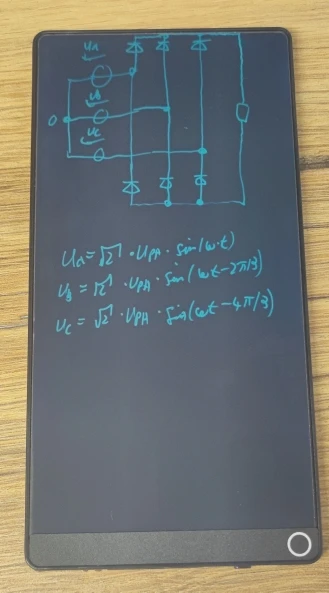 UA
UB
0
UC
UA = √2 · UPH · sin(ωt)
UB = √2 · UPH · sin(ωt - 2π/3)
UC = √2 · UPH · sin(ωt - 4π/3)